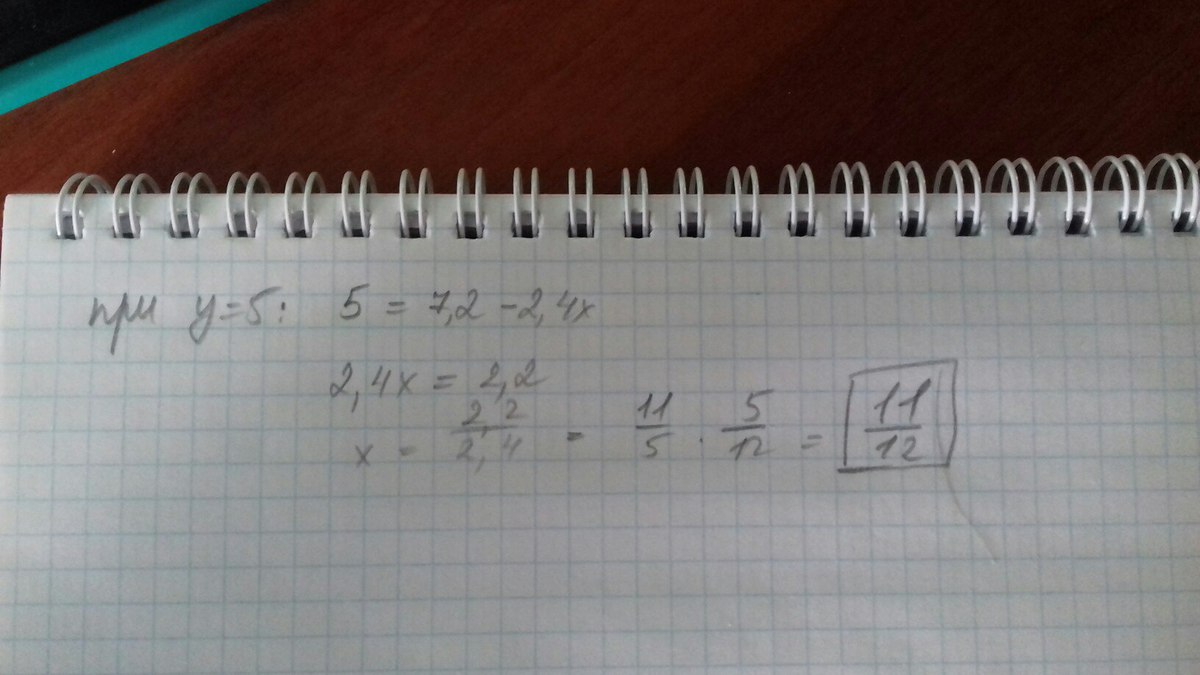 при y=5: 5 = 7,2 - 2,4x
2,4x = 2,2
x = 2,2/2,4 = 11/5 · 5/12 = 11/12